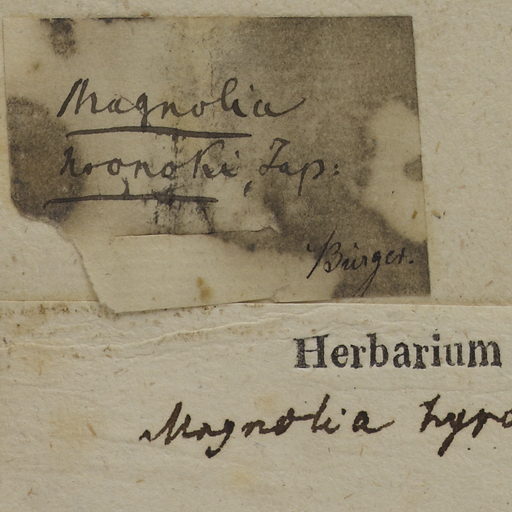 Magnolia
honoki, Jap:
Bürger.
Herbarium
Magnolia hypo